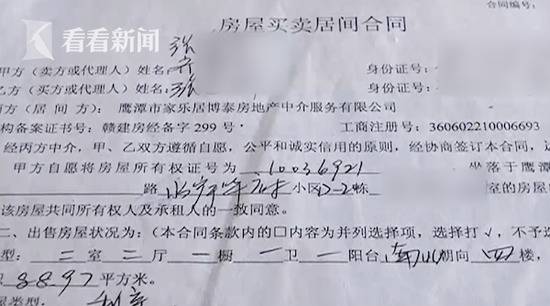 合同编号：
看看新闻
房屋买卖居间合同
甲方（卖方或代理人）姓名： 张 身份证号：
乙方（买方或代理人）姓名： 张 身份证号：
丙方（居间方）：鹰潭市家乐居博泰房地产中介服务有限公司
构备案证书号：赣建房经备字 299 号． 工商注册号：360602210006693
经丙方中介，甲、乙双方遵循自愿，公平和诚实信用的原则，经协商签订本合同，
甲方自愿将房屋所有权证号为 10036921 坐落于鹰潭
路 小区 D-2栋 室的房屋
该房屋共同所有权人及承租人的一致同意。
二、出售房屋状况为：（本合同条款内的口内容为并列选择项，选择打√，不予选
型： 三 室 二 厅 一 橱 一 卫 一 阳台 南北 朝向 四 楼，
88.97 平方米。
屋类型：